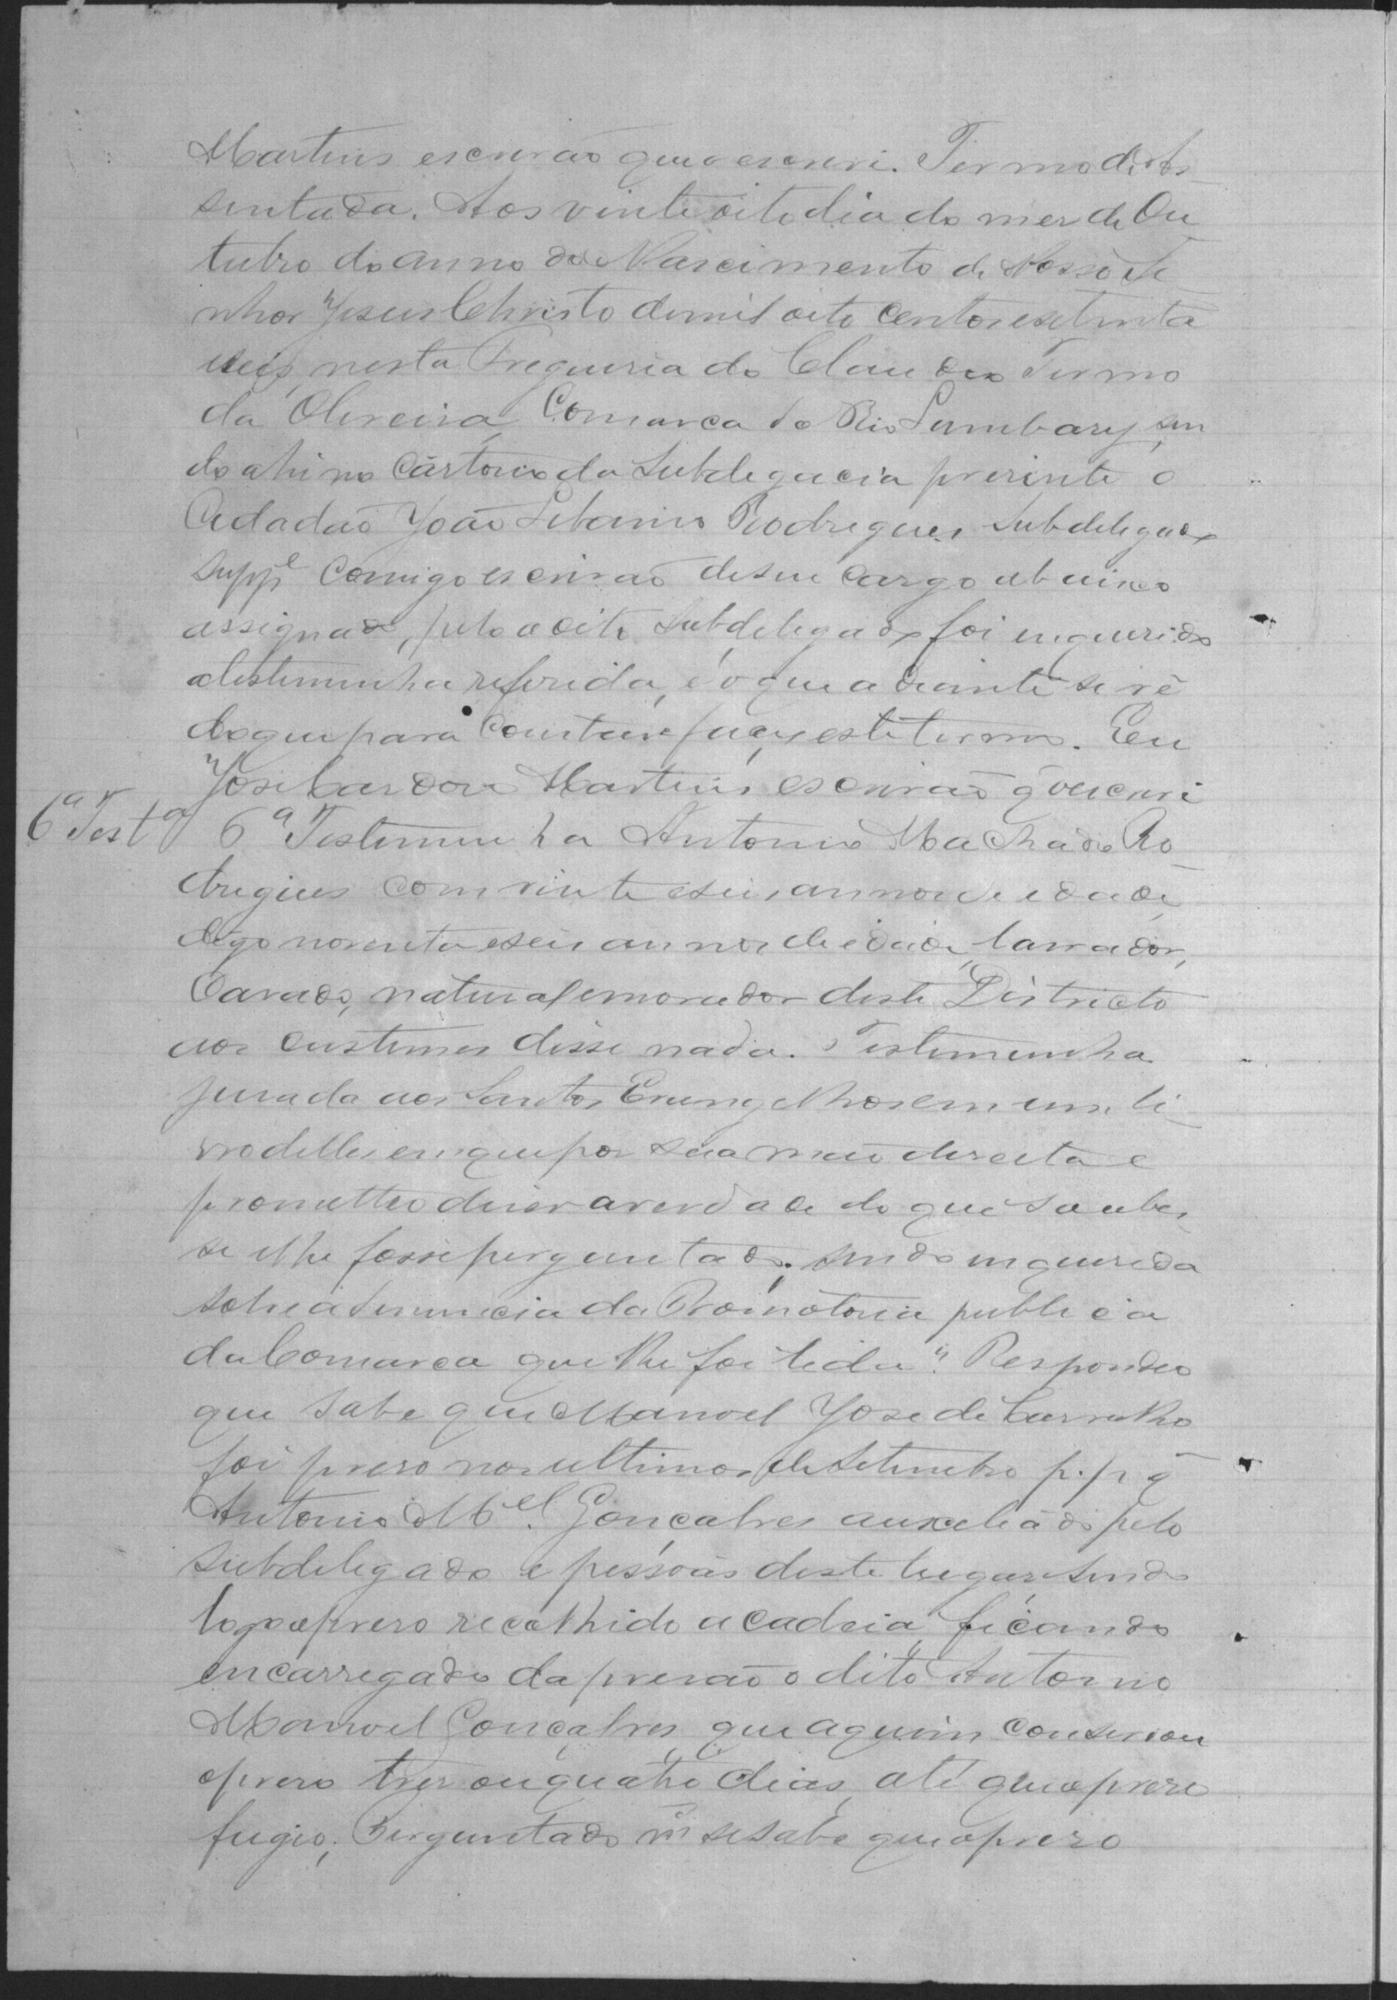 Martins escrivão que o escrevi. Termo de As-
sentada. Aos vinte oito dia do mez de Ou
tubro do anno do Nascimento de Nosso Se
nhor Jesus Christo de mil oito centos e setenta
e seis, nesta Freguesia do Claudio Termo
da Oliveira, Comarca do Rio Lambary, sen
do ahi no Cartorio da Subdelegacia presente o
Cidadão João Libanio Rodrigues Subdelegado
Suppl^e Comigo escrivão de seu cargo abaixo
assignado, pelo dito Subdelegado foi inquerido
a testemunha referida, é o que adiante se vê
do que para Constar faço este termo. Eu
José Cardoso Martins escrivão q̃ o escrevi
6ª Testª 6ª Testemunha Antonio Machado Ro-
drigues com vinte e seis annos de edade,
digo noventa e seis annos de edade, lavrador,
Casado, natural e morador deste Districto
aos custumes disse nada. Testemunha
jurada aos Santos Evangelhos em um li-
vro delles em que pos sua mão direita e
prometteo diser a verdade do que soubes
se e lhe fosse perguntado. sendo inquerida
sobre a denuncia da Promotoria publica
da Comarca que lhe foi lida". Respondeo
que sabe que Manoel José de Carvalho
foi preso nos ultimos de Setembro p.p q̃
Antonio M^el. Gonçalves auxeliado pelo
Subdelegado e pessoas deste lugar sendo
logo o preso recolhido a cadeia, ficando
encarregado da presão o dito Antonio
Manoel Gonçalves, que aquim conservou
o preso tres ou quatro dias, até que o preso
fugio; Perguntado m^s se sabe que o preso